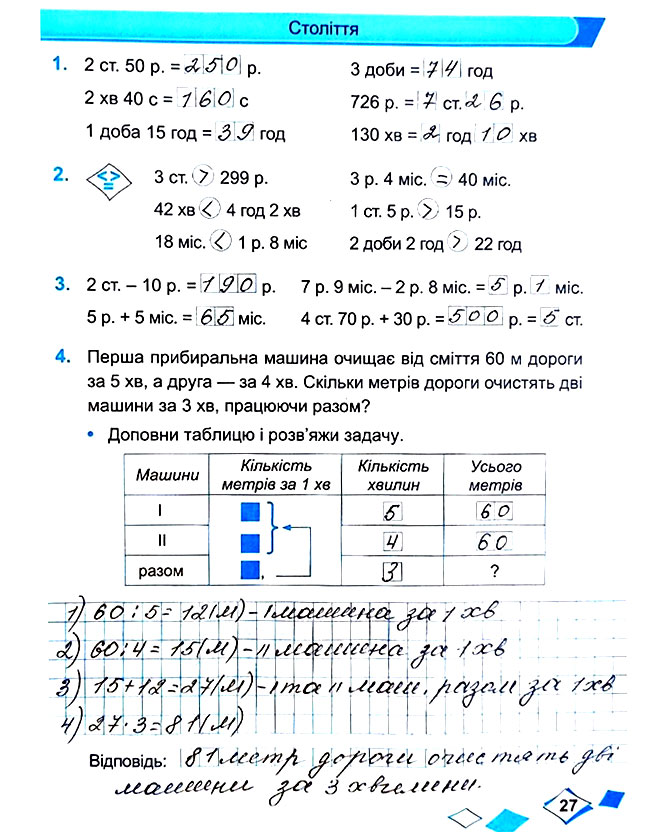 Століття
1. 2 ст. 50 р. = 250 р. 3 доби = 74 год
2 хв 40 с = 160 с 726 р. = 7 ст. 26 р.
1 доба 15 год = 39 год 130 хв = 2 год 10 хв
2. < > = 3 ст. > 299 р. 3 р. 4 міс. = 40 міс.
42 хв < 4 год 2 хв 1 ст. 5 р. > 15 р.
18 міс. < 1 р. 8 міс 2 доби 2 год > 22 год
3. 2 ст. – 10 р. = 190 р. 7 р. 9 міс. – 2 р. 8 міс. = 5 р. 1 міс.
5 р. + 5 міс. = 65 міс. 4 ст. 70 р. + 30 р. = 500 р. = 5 ст.
4. Перша прибиральна машина очищає від сміття 60 м дороги
за 5 хв, а друга — за 4 хв. Скільки метрів дороги очистять дві
машини за 3 хв, працюючи разом?
• Доповни таблицю і розв'яжи задачу.
Машини Кількість метрів за 1 хв Кількість хвилин Усього метрів
I 5 60
II 4 60
разом , 3 ?
1) 60 : 5 = 12 (м) - I машина за 1 хв
2) 60 : 4 = 15 (м) - II машина за 1 хв
3) 15 + 12 = 27 (м) - I та II маш. разом за 1 хв
4) 27 · 3 = 81 (м)
Відповідь: 81 метр дороги очистять дві
машини за 3 хвилини.
27